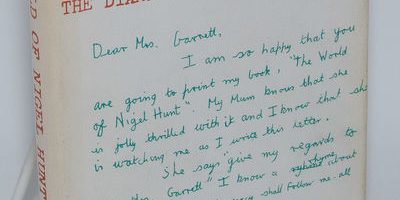 THE DIA
D OF NIGEL HUNT
Dear Mrs. Garrett,
I am so happy that you
are going to print my book, "The World
of Nigel Hunt". My Mum knows that she
is jolly thrilled with it and I know that she
is watching me as I write this letter.
She says "give my regards to
Mrs. Garrett" I know a rhyme about
shall follow me all